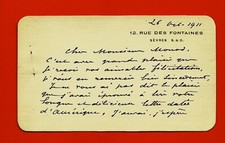 26 Oct. 1911
12. RUE DES FONTAINES
SÈVRES S.&O.
Cher Monsieur Monod,
C'est avec grand plaisir que
je reçois vos aimables félicitations,
je vous en remercie bien sincèrement,
je ne vous ai pas dit le plaisir
que j'avais éprouvé à lire votre
longue et délicieuse lettre datée
d'Amérique, j'avais, j'espère